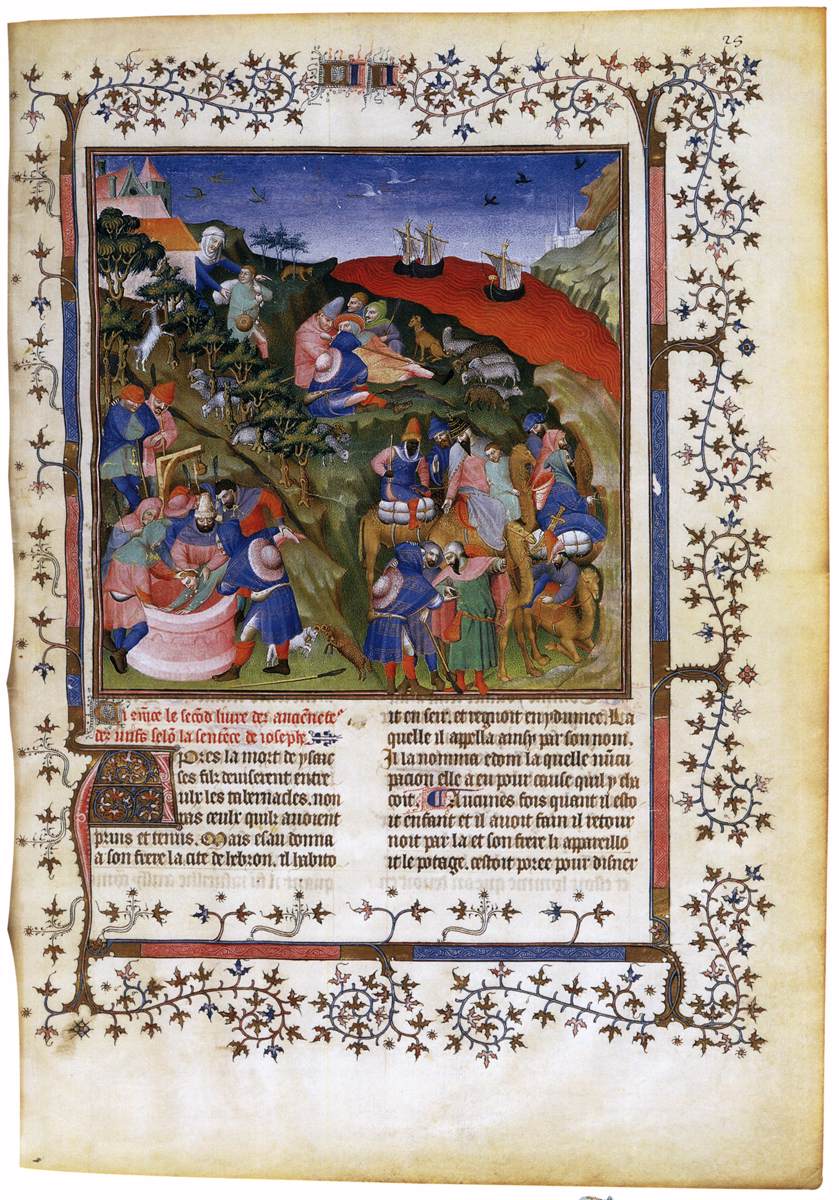 25
Ci cõmẽce le secõd livre des anciẽnetes
des iuifs selõ la sentẽce de iosephe
Apres la mort de ysaac
ses filz deviserent entre
eulx les tabernacles. non
pas ceulx quilz avoient
prins et tenus. Mais esau donna
a son frere la cite de lebron. il habito
it en seir. et regnoit en ydumee. La
quelle il appella ainsy par son nom.
Il la nomma edom la quelle nũcu
pacion elle a eu pour cause quil y cha
coit. Aucunes fois quant il esto
it enfant et il avoit fain il retour
noit par la et son frere li appareillo
it le potage. cestoit poree pour disner